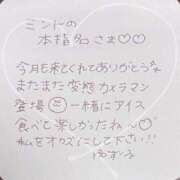 ミントの
本指名さま♡♡
今月も来てくれてありがとう
またまた変態カメラマン
登場 一緒にアイス
食べて楽しかったね〜♡
私をオカズにして下さい!!